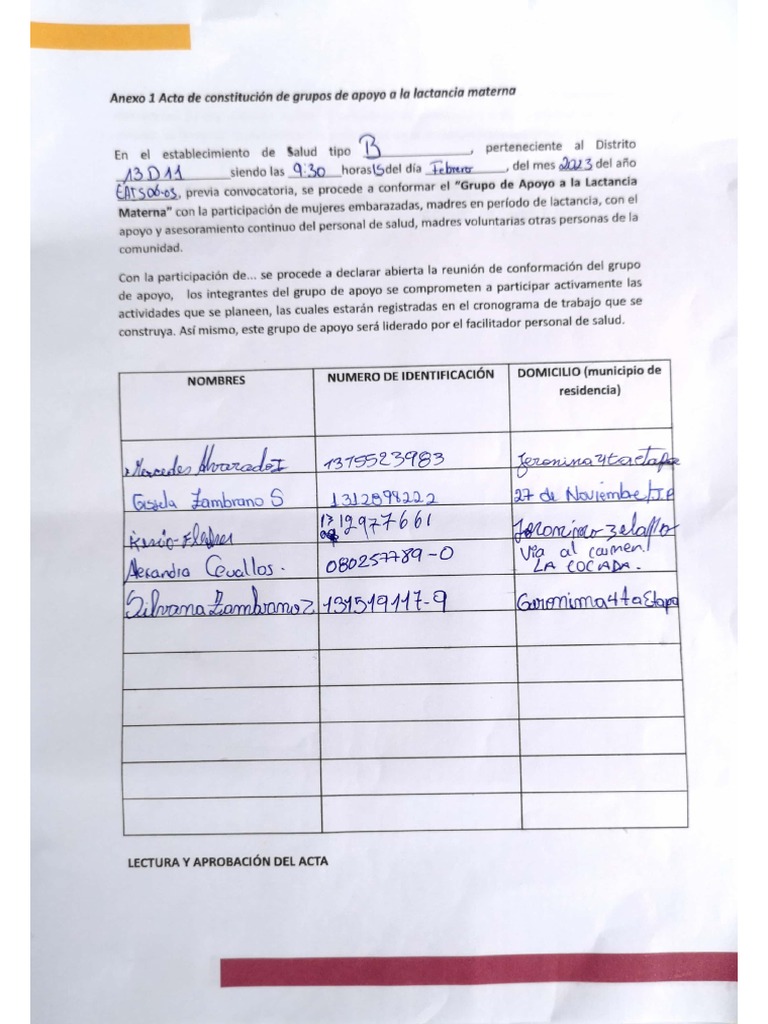 Anexo 1 Acta de constitución de grupos de apoyo a la lactancia materna
En el establecimiento de Salud tipo B, perteneciente al Distrito
13D11 siendo las 9:30 horas 15 del día Febrero, del mes 2023 del año
EATS06-03, previa convocatoria, se procede a conformar el "Grupo de Apoyo a la Lactancia
Materna" con la participación de mujeres embarazadas, madres en período de lactancia, con el
apoyo y asesoramiento continuo del personal de salud, madres voluntarias otras personas de la
comunidad.
Con la participación de... se procede a declarar abierta la reunión de conformación del grupo
de apoyo, los integrantes del grupo de apoyo se comprometen a participar activamente las
actividades que se planeen, las cuales estarán registradas en el cronograma de trabajo que se
construya. Así mismo, este grupo de apoyo será liderado por el facilitador personal de salud.
NOMBRES NUMERO DE IDENTIFICACIÓN DOMICILIO (municipio de
residencia)
Mercedes Alvarado I 1315523983 Jeronima 4ta etapa
Gissela Zambrano S 1312898222 27 de Noviembre/J.P
1312977661
Alexandra Cevallos. 080257789-0 Via al carmen/
LA COCADA.
Silvana Zambrano Z 131519117-9 Geronima 4ta Etapa
LECTURA Y APROBACIÓN DEL ACTA